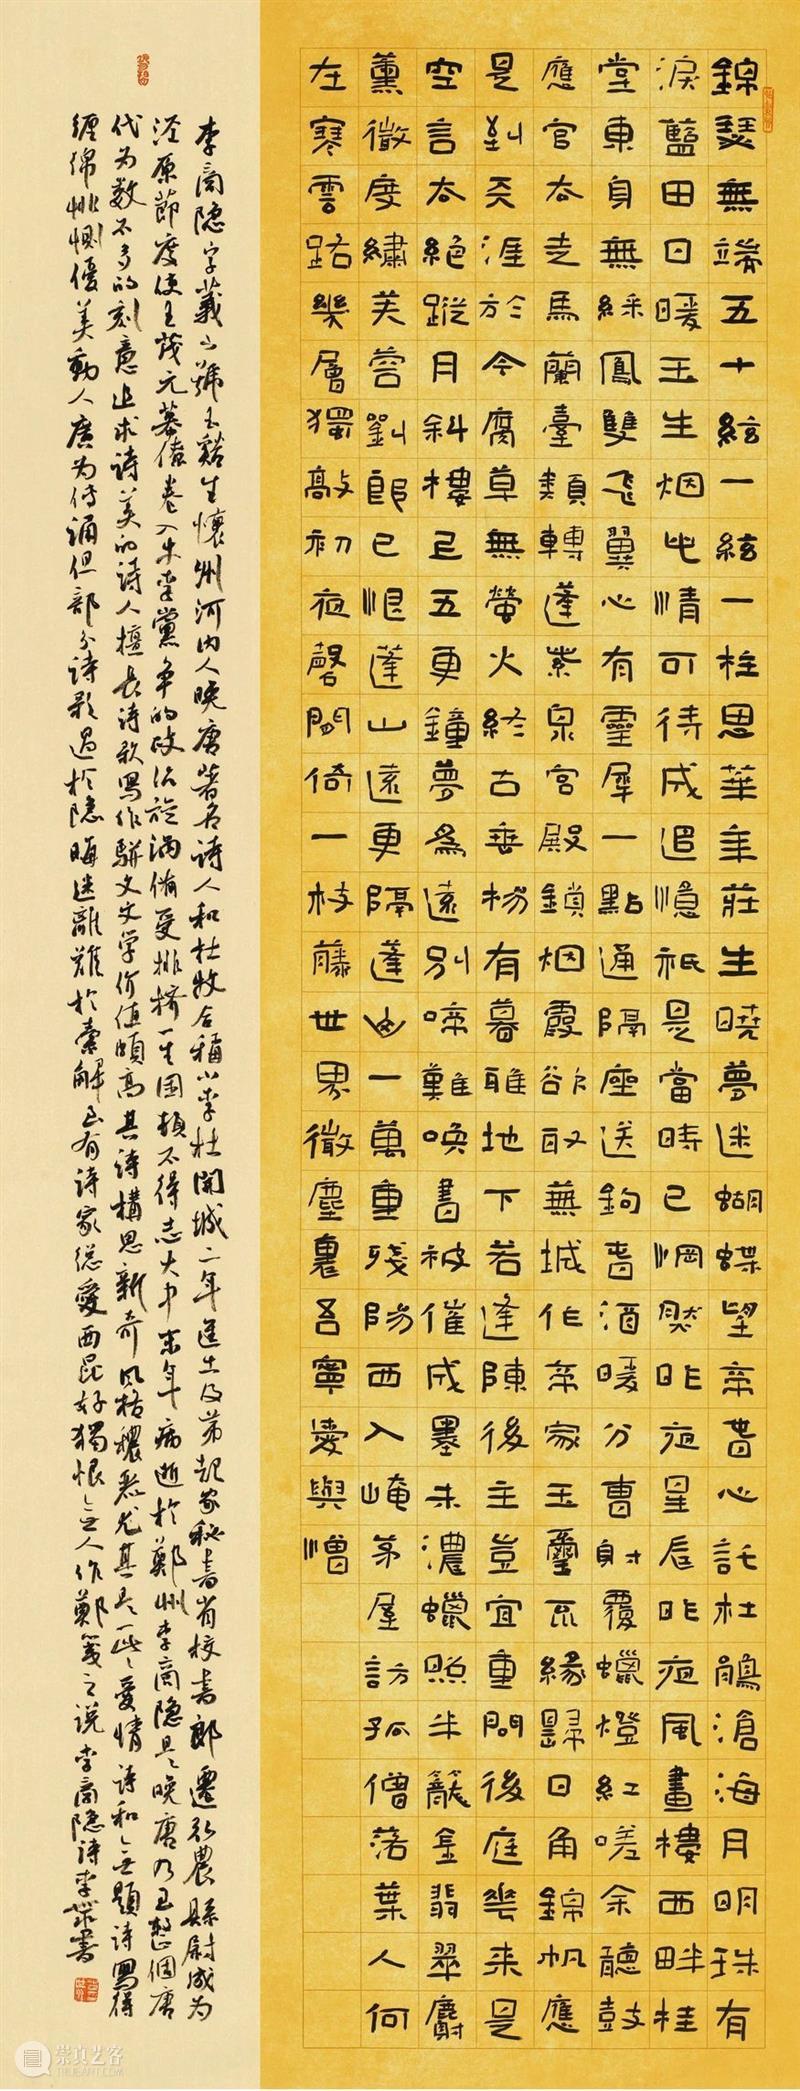 錦瑟無端五十絃一絃一柱思華年莊生曉夢迷蝴蝶望帝春心託杜鵑滄海月明珠有
淚藍田日暖玉生烟此情可待成追憶祇是當時已惘然昨夜星辰昨夜風畫樓西畔桂
堂東身無綵鳳雙飛翼心有靈犀一點通隔座送鉤春酒暖分曹射覆蠟燈紅嗟余聽鼓
應官去走馬蘭臺類轉蓬紫泉宮殿鎖烟霞欲取蕪城作帝家玉璽不緣歸日角錦帆應
是到天涯於今腐草無螢火終古垂楊有暮鴉地下若逢陳後主豈宜重問後庭花来是
空言去絕蹤月斜樓上五更鐘夢為遠別啼難喚書被催成墨未濃蠟照半籠金翡翠麝
薰微度繡芙蓉劉郎已恨蓬山遠更隔蓬山一萬重殘陽西入崦茅屋訪孤僧落葉人何
在寒雲路幾層獨敲初夜磬閒倚一枝藤世界微塵裏吾寧愛與憎
李商隐字義山號玉谿生懷州河内人晚唐著名詩人和杜牧合稱小李杜開城二年進士及第起家秘書省校書郎遷弘農縣尉成為
泾原節度使王茂元幕僚卷入牛李黨争的政治旋渦備受排擠一生困頓不得志大中末年病逝於鄭州李商隐是晚唐乃至整個唐
代为數不多的刻意追求詩美的詩人擅長詩歌寫作駢文文学价值頗高其詩構思新奇風格穠麗尤其是一些愛情詩和無題詩寫得
缠绵悱惻優美動人廣为传誦但部分詩歌過於隐晦迷離難於索解至有詩家總愛西昆好獨恨無人作鄭箋之説李商隐詩李書
崇真艺客